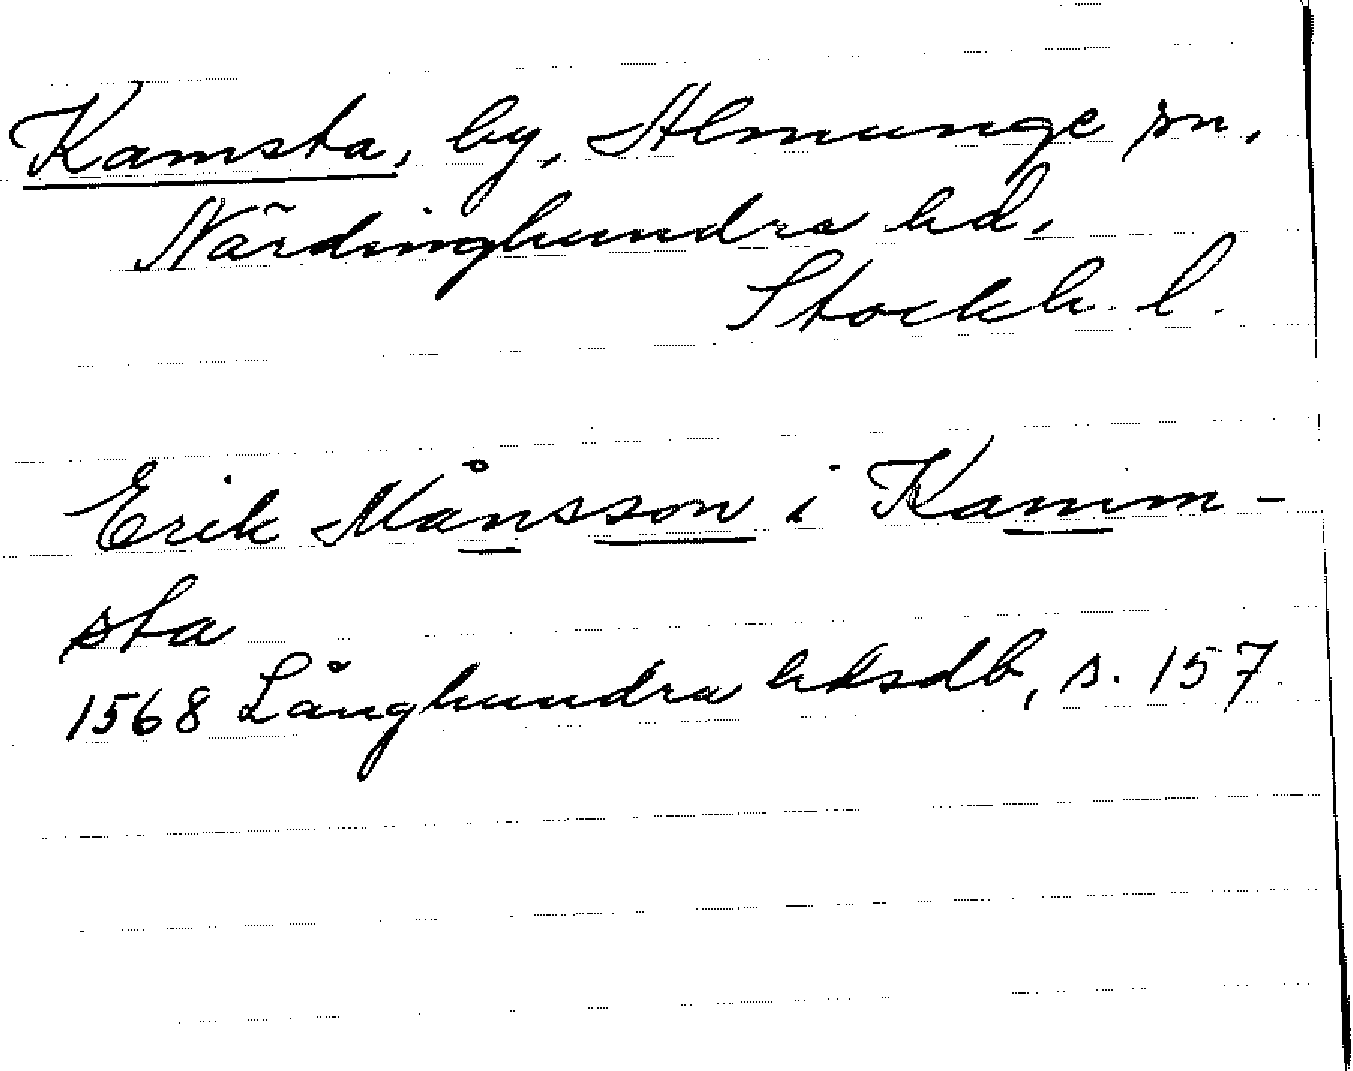 Kamsta, by, Almunge sn,
Närdinghundra hd,
Stockh. l.
Erik Månsson i Kamm-
sta
1568 Långhundra hdsdb, s. 157